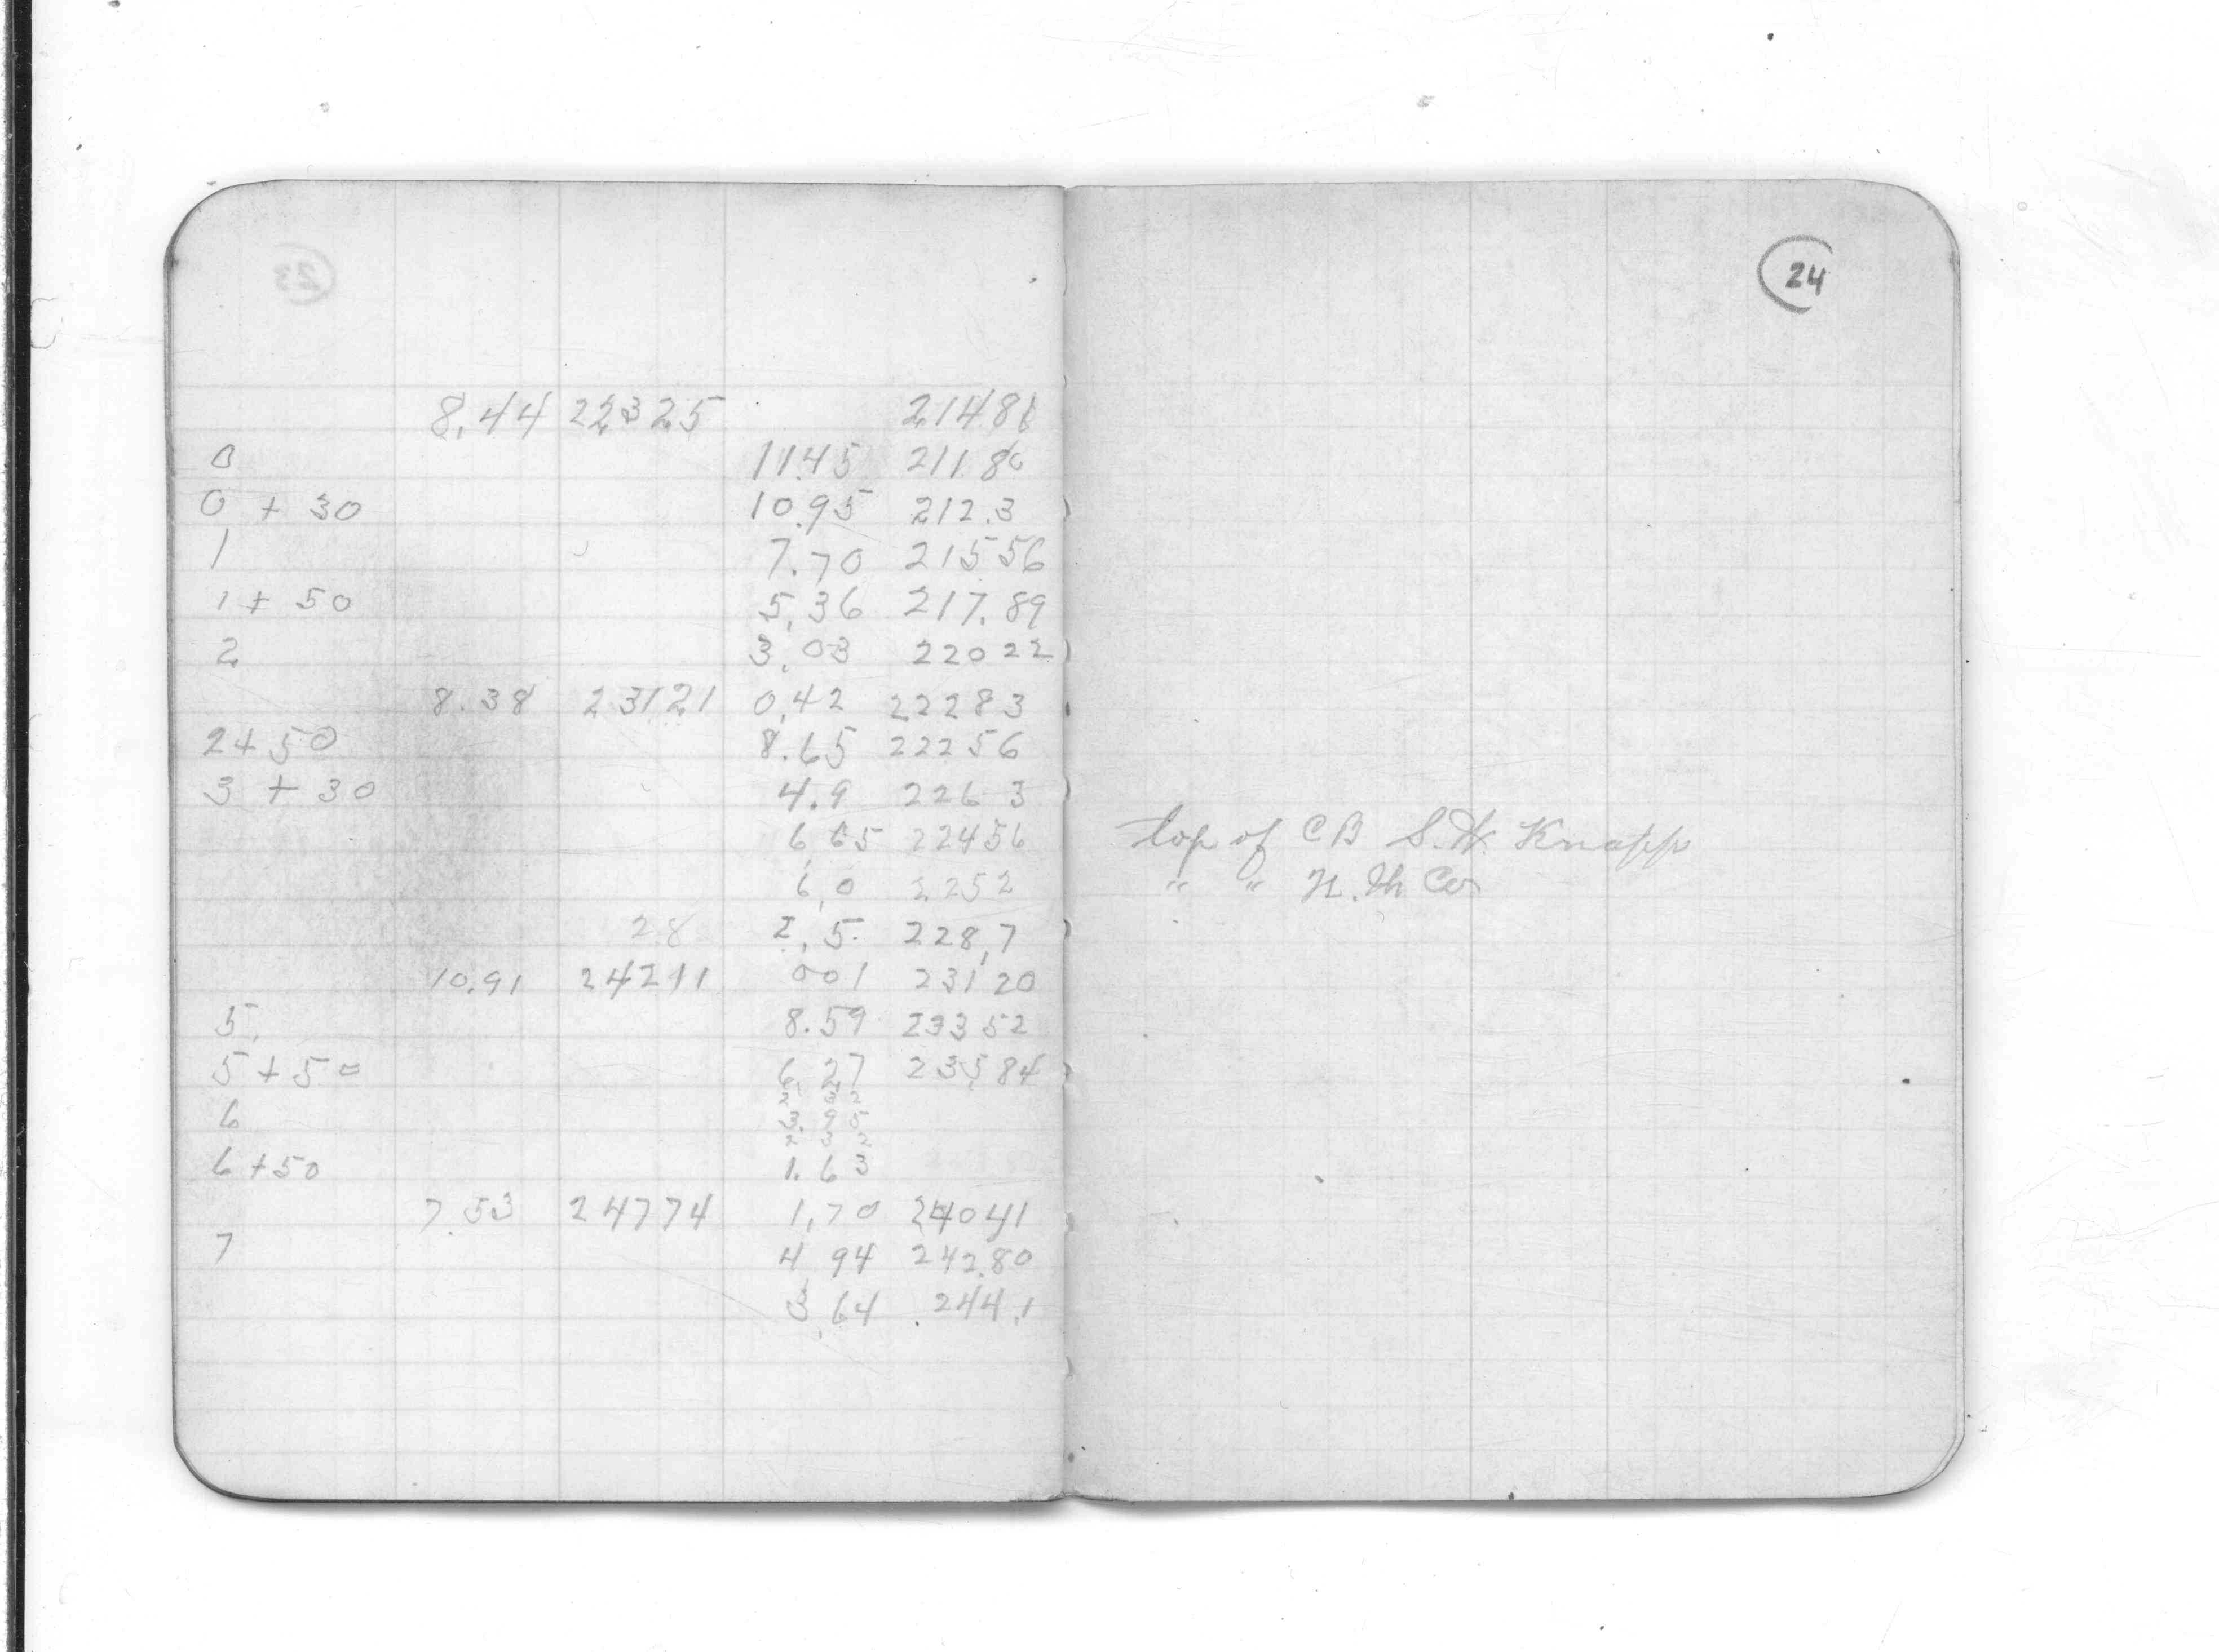 24
8.44 22325 21481
0 11.45 211.80
0 + 30 10.95 212.3
1 7.70 21556
1 + 50 5.36 217.89
2 3.03 22022
8.38 23121 0.42 22283
2+50 8.65 22256
3 + 30 4.9 226 3
6.65 22456
6.0 2252
28 2.5 228.7
10.91 24211 001 23120
5 8.59 23352
5+50 6.27 23584
2 32
6 3.95
2 32
6+50 1.63
7.53 24774 1.70 24041
7 4 94 242.80
3.64 244.1
top of CB S.W. Knapp
" " N.